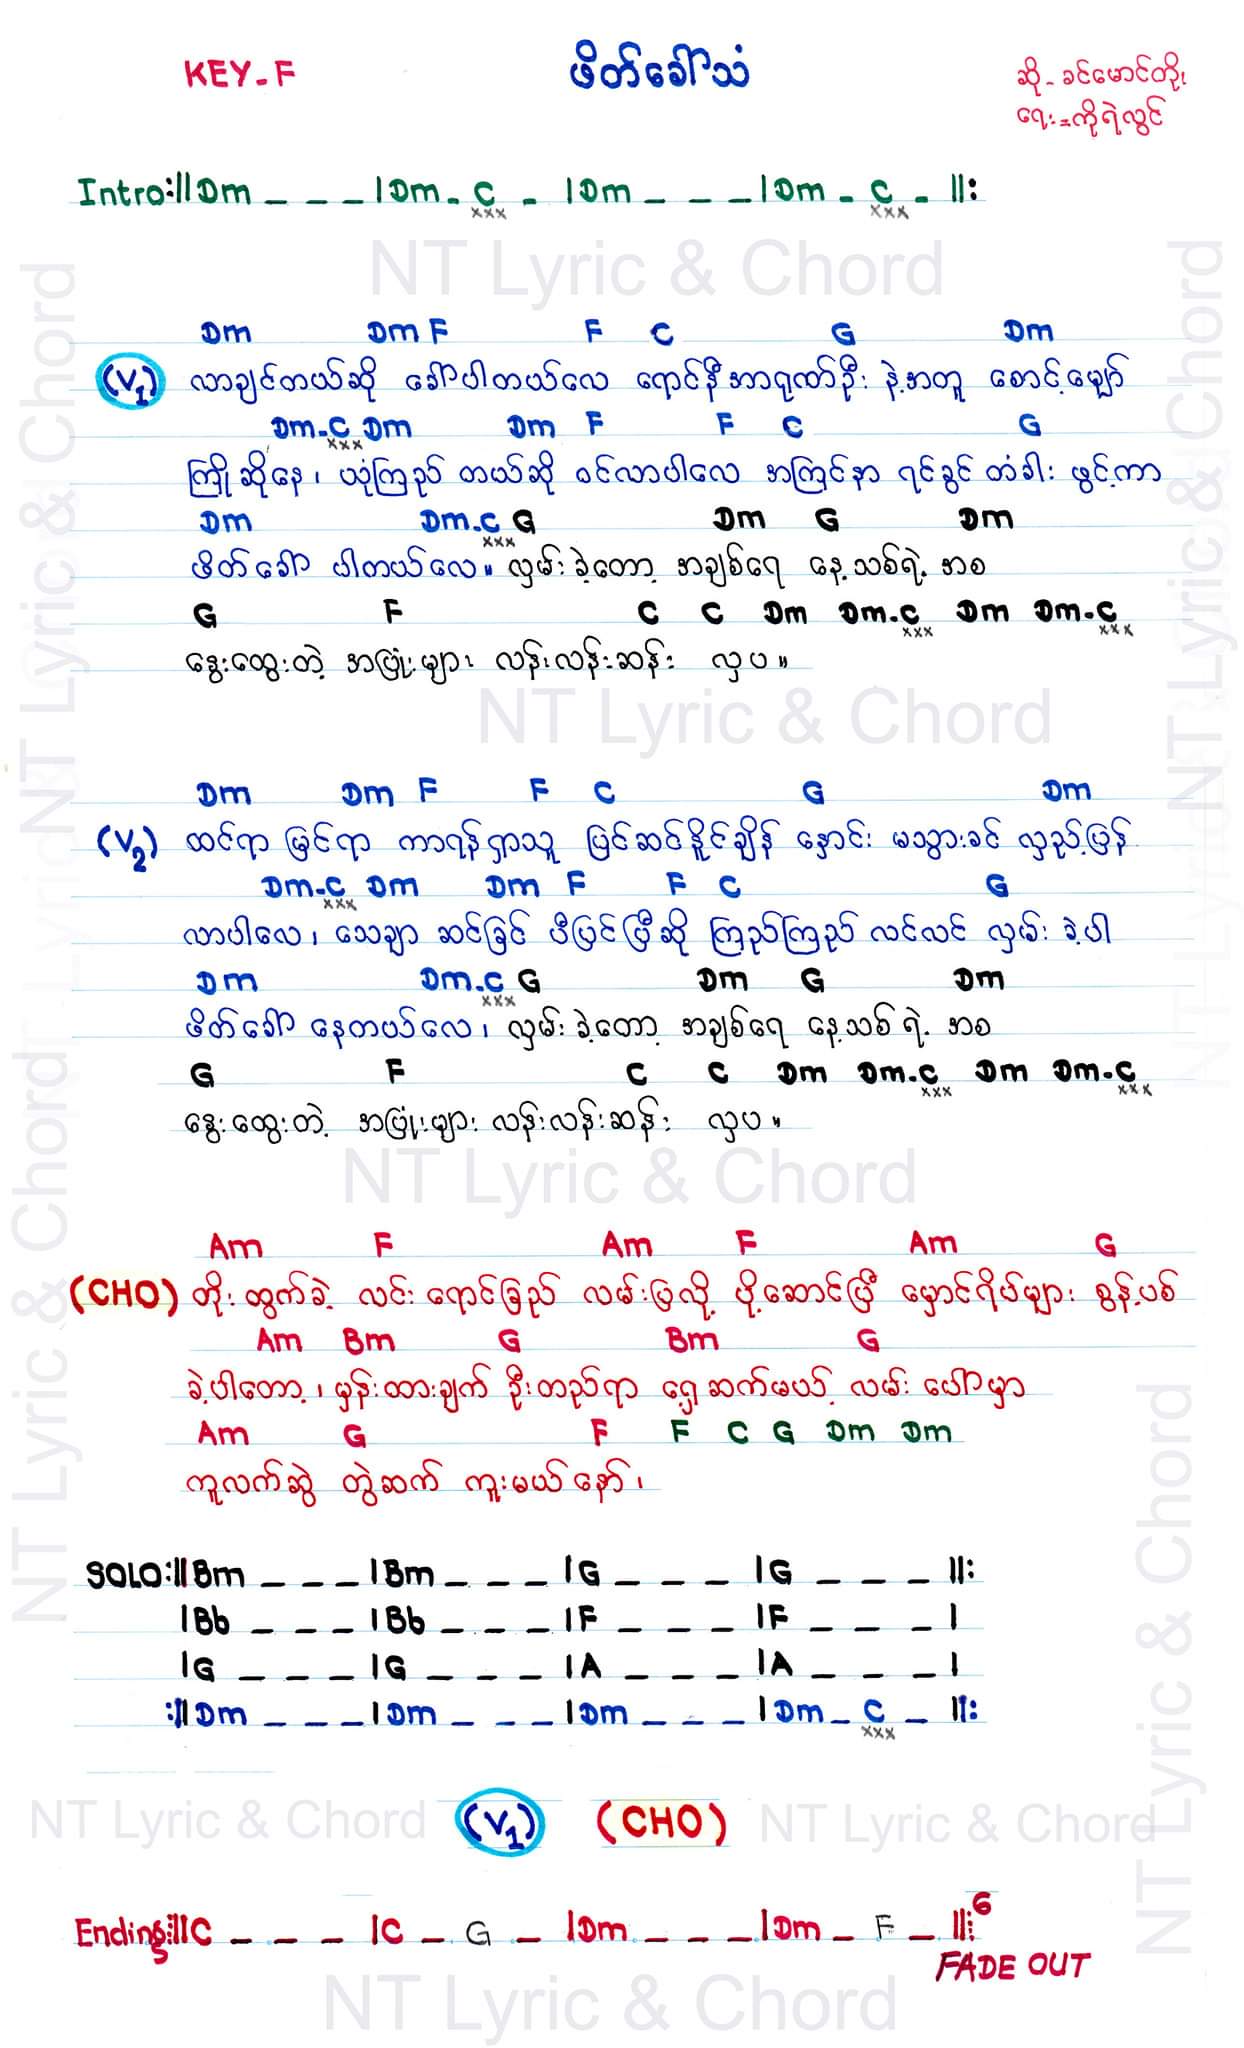 KEY-F
ဖိတ်ခေါ်သံ
ဆို - ခင်မောင်တိုး
ရေး = ကိုရဲလွင်
Intro:||Dm _ _ _ |Dm - C - |Dm _ _ _ |Dm - C - ||:
xxx xxx
NT Lyric & Chord
Dm Dm F F C G Dm
(V1) လာချင်တယ်ဆို ခေါ်ပါတယ်လေ ရောင်နီအာရုဏ်ဦး နဲ့အတူ စောင့်မျှော်
Dm-C Dm Dm F F C G
xxx
ကြိုဆိုနေ၊ ယုံကြည် တယ်ဆို ဝင်လာပါလေ အကြင်နာ ရင်ခွင် တံခါး ဖွင့်ကာ
Dm Dm-C G Dm G Dm
xxx
ဖိတ်ခေါ် ပါတယ်လေ။ လှမ်းခဲ့တော့ အချစ်ရေ နေ့သစ်ရဲ့ အစ
G F C C Dm Dm-C Dm Dm-C
xxx xxx
နွေးထွေးတဲ့ အပြုံးများ လန်းလန်းဆန်း လှပ။
NT Lyric & Chord
Dm Dm F F C G Dm
(V2) ထင်ရာ မြင်ရာ ကာရန်ရှာသူ ပြင်ဆင်နိုင်ချိန် နှောင်း မသွားခင် လှည့်ပြန်
Dm-C Dm Dm F F C G
xxx
လာပါလေ၊ သေချာ ဆင်ခြင် ပီပြင်ပြီဆို ကြည်ကြည် လင်လင် လှမ်း ခဲ့ပါ
Dm Dm-C G Dm G Dm
xxx
ဖိတ်ခေါ် နေတယ်လေ၊ လှမ်းခဲ့တော့ အချစ်ရေ နေ့သစ်ရဲ့ အစ
G F C C Dm Dm-C Dm Dm-C
xxx xxx
နွေးထွေးတဲ့ အပြုံးများ လန်းလန်းဆန်း လှပ။
NT Lyric & Chord
Am F Am F Am G
(CHO) တိုးထွက်ခဲ့ လင်းရောင်ခြည် လမ်းပြလို့ ပို့ဆောင်ပြီ မှောင်ရိပ်များ စွန့်ပစ်
Am Bm G Bm G
ခဲ့ပါတော့၊ မှန်းထားချက် ဦးတည်ရာ ရှေ့ဆက်မယ့် လမ်းပေါ်မှာ
Am G F F C G Dm Dm
ကူလက်ဆွဲ တွဲဆက် ကူးမယ်နော်၊
SOLO:||Bm _ _ _ |Bm _ _ _ |G _ _ _ |G _ _ _ ||:
|Bb _ _ _ |Bb _ _ _ |F _ _ _ |F _ _ _ |
|G _ _ _ |G _ _ _ |A _ _ _ |A _ _ _ |
:||Dm _ _ _ |Dm _ _ _ |Dm _ _ _ |Dm _ C _ ||:
xxx
NT Lyric & Chord (V1) (CHO) NT Lyric & Chord
Ending:||C _ _ _ |C _ G _ |Dm _ _ _ |Dm _ F _ ||: 6
FADE OUT
NT Lyric & Chord
NT Lyric & Chord
NT Lyric & Chord
NT Lyric & Chord
NT Lyric & Chord